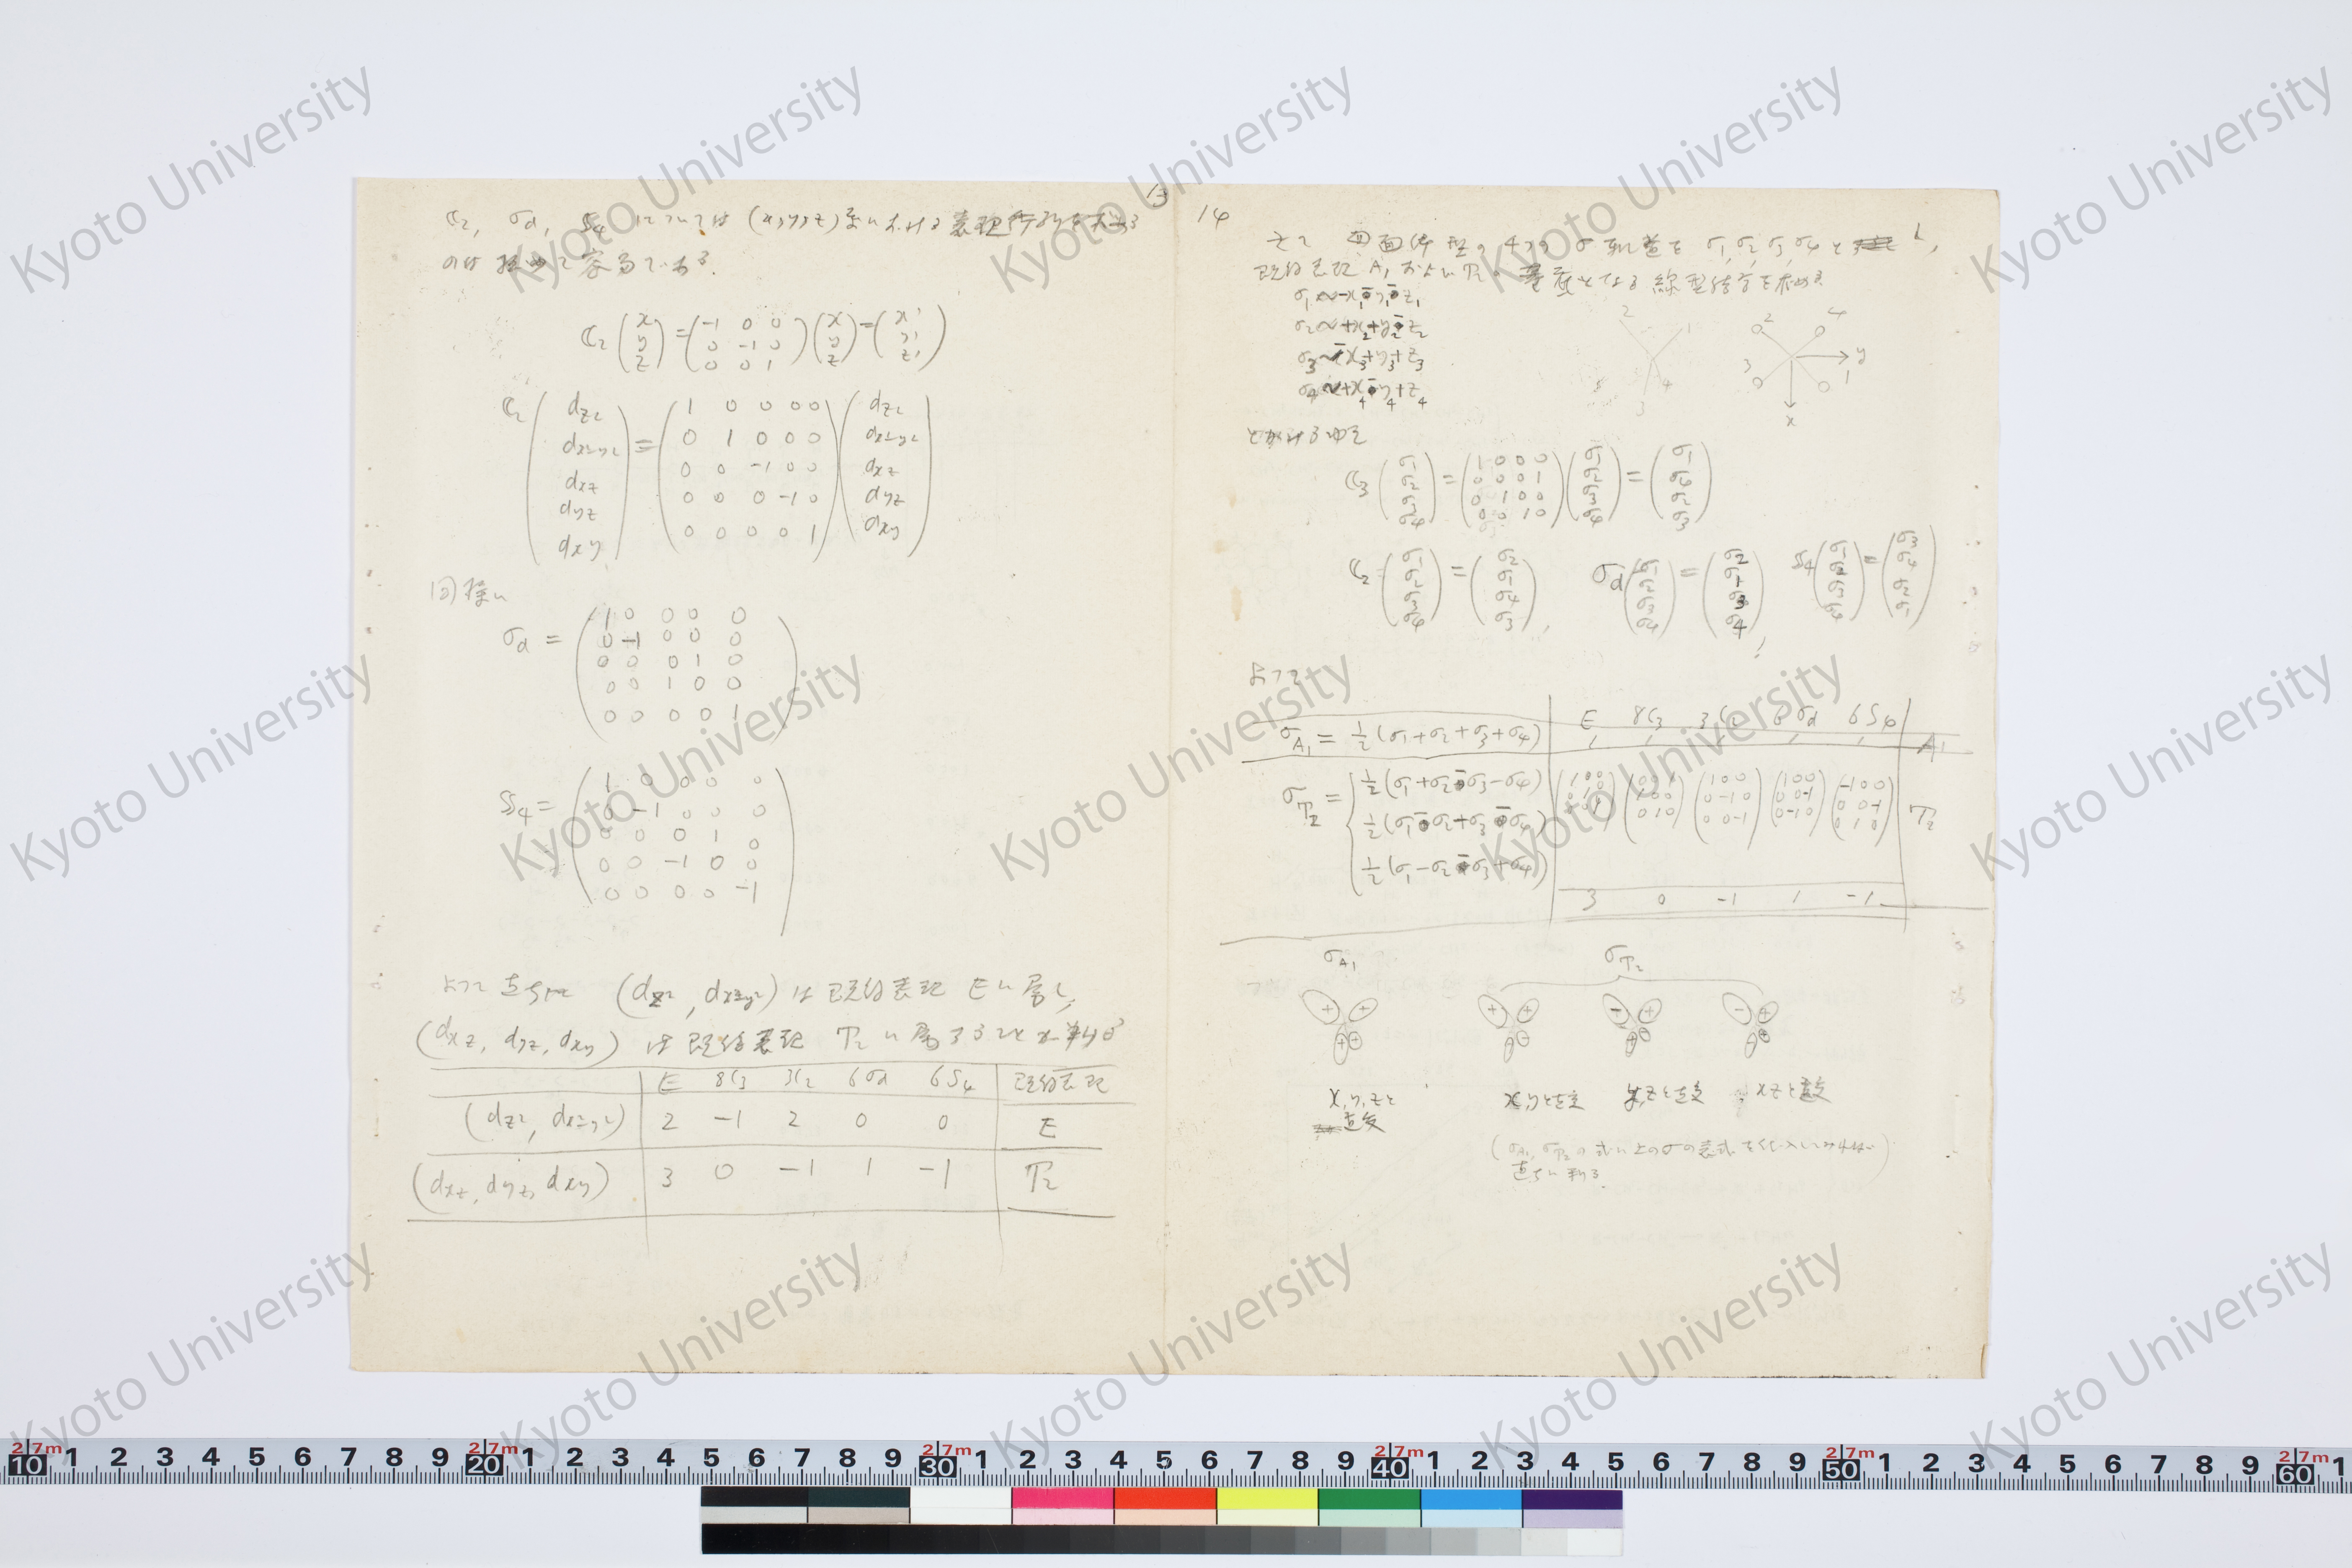 13
C₂, σd, S₄ については (x,y,z)系における表現行列を求める
のは極めて容易である.
C₂ (x y z) = (-1 0 0 / 0 -1 0 / 0 0 1) (x y z) = (x' y' z')
C₂ (dz² dx²-y² dxz dyz dxy) = (1 0 0 0 0 / 0 1 0 0 0 / 0 0 -1 0 0 / 0 0 0 -1 0 / 0 0 0 0 1) (dz² dx²-y² dxz dyz dxy)
同様に
σd = (1 0 0 0 0 / 0 -1 0 0 0 / 0 0 0 1 0 / 0 0 1 0 0 / 0 0 0 0 1)
S₄ = (1 0 0 0 0 / 0 -1 0 0 0 / 0 0 0 1 0 / 0 0 -1 0 0 / 0 0 0 0 -1)
よって直ちに (dz², dx²-y²) は既約表現 E に属し,
(dxz, dyz, dxy) は既約表現 T₂ に属することが判る
E 8C₃ 3C₂ 6σd 6S₄ 既約表現
(dz², dx²-y²) 2 -1 2 0 0 E
(dxz, dyz, dxy) 3 0 -1 1 -1 T₂
14
四面体型の4つの σ 軌道を σ₁, σ₂, σ₃, σ₄ とし,
既約表現 A₁ および T₂ の基底となる線型結合を求める
σ₁ ~ -x₁-y₁-z₁
σ₂ ~ +x₂+y₂-z₂
σ₃ ~ -x₃+y₃+z₃
σ₄ ~ +x₄-y₄+z₄
2 1 4 3
2 4 3 1 y x
とかける ゆえ
C₃ (σ₁ σ₂ σ₃ σ₄) = (1 0 0 0 / 0 0 0 1 / 0 1 0 0 / 0 0 1 0) (σ₁ σ₂ σ₃ σ₄) = (σ₁ σ₄ σ₂ σ₃)
C₂ (σ₁ σ₂ σ₃ σ₄) = (σ₂ σ₁ σ₄ σ₃), σd (σ₁ σ₂ σ₃ σ₄) = (σ₂ σ₁ σ₃ σ₄), S₄ (σ₁ σ₂ σ₃ σ₄) = (σ₃ σ₄ σ₂ σ₁)
よって
E 8C₃ 3C₂ 6σd 6S₄
σA₁ = ½(σ₁+σ₂+σ₃+σ₄) 1 1 1 1 1 A₁
σT₂ = { ½(σ₁+σ₂-σ₃-σ₄) (1 0 0 / 0 1 0 / 0 0 1) (0 0 1 / 1 0 0 / 0 1 0) (1 0 0 / 0 -1 0 / 0 0 -1) (1 0 0 / 0 0 -1 / 0 -1 0) (-1 0 0 / 0 0 -1 / 0 1 0) T₂
½(σ₁-σ₂+σ₃-σ₄)
½(σ₁-σ₂-σ₃+σ₄)
3 0 -1 1 -1
σA₁ σT₂
x,y,zと x,yと直交 y,zと直交 xzと直交
直交
(σA₁, σT₂ の式に上のσの表式を代入してみれば
直ちに判る.
Kyoto University